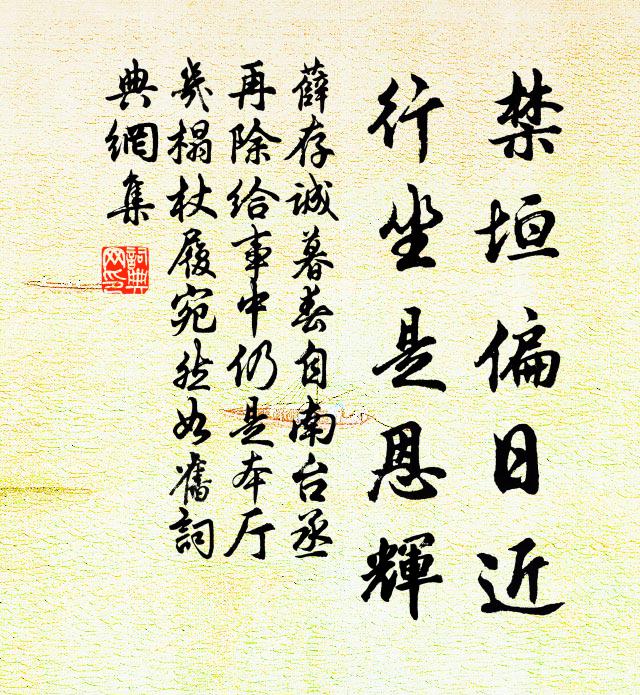 禁垣偏日近
行坐是恩輝
薛存诚暮春自南台丞
再除给事中仍是本厅
几榻杖履宛然如舊詞
典網集
詞典网印